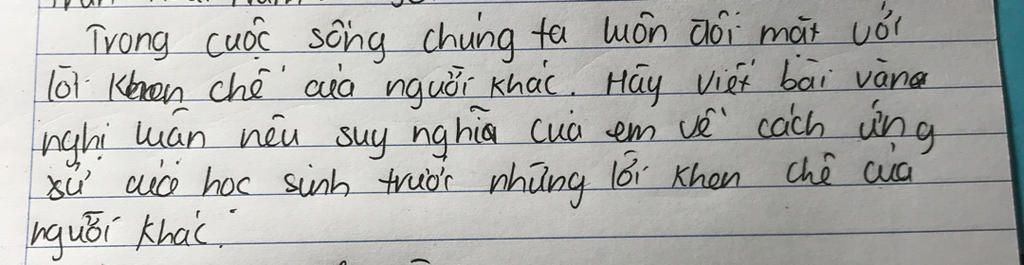 Trong cuộc sống chúng ta luôn đối mặt với
lời khen chê của người khác. Hãy viết bài văn
nghị luận nêu suy nghĩa của em về cách ứng
xử của học sinh trước những lời khen chê của
người khác.